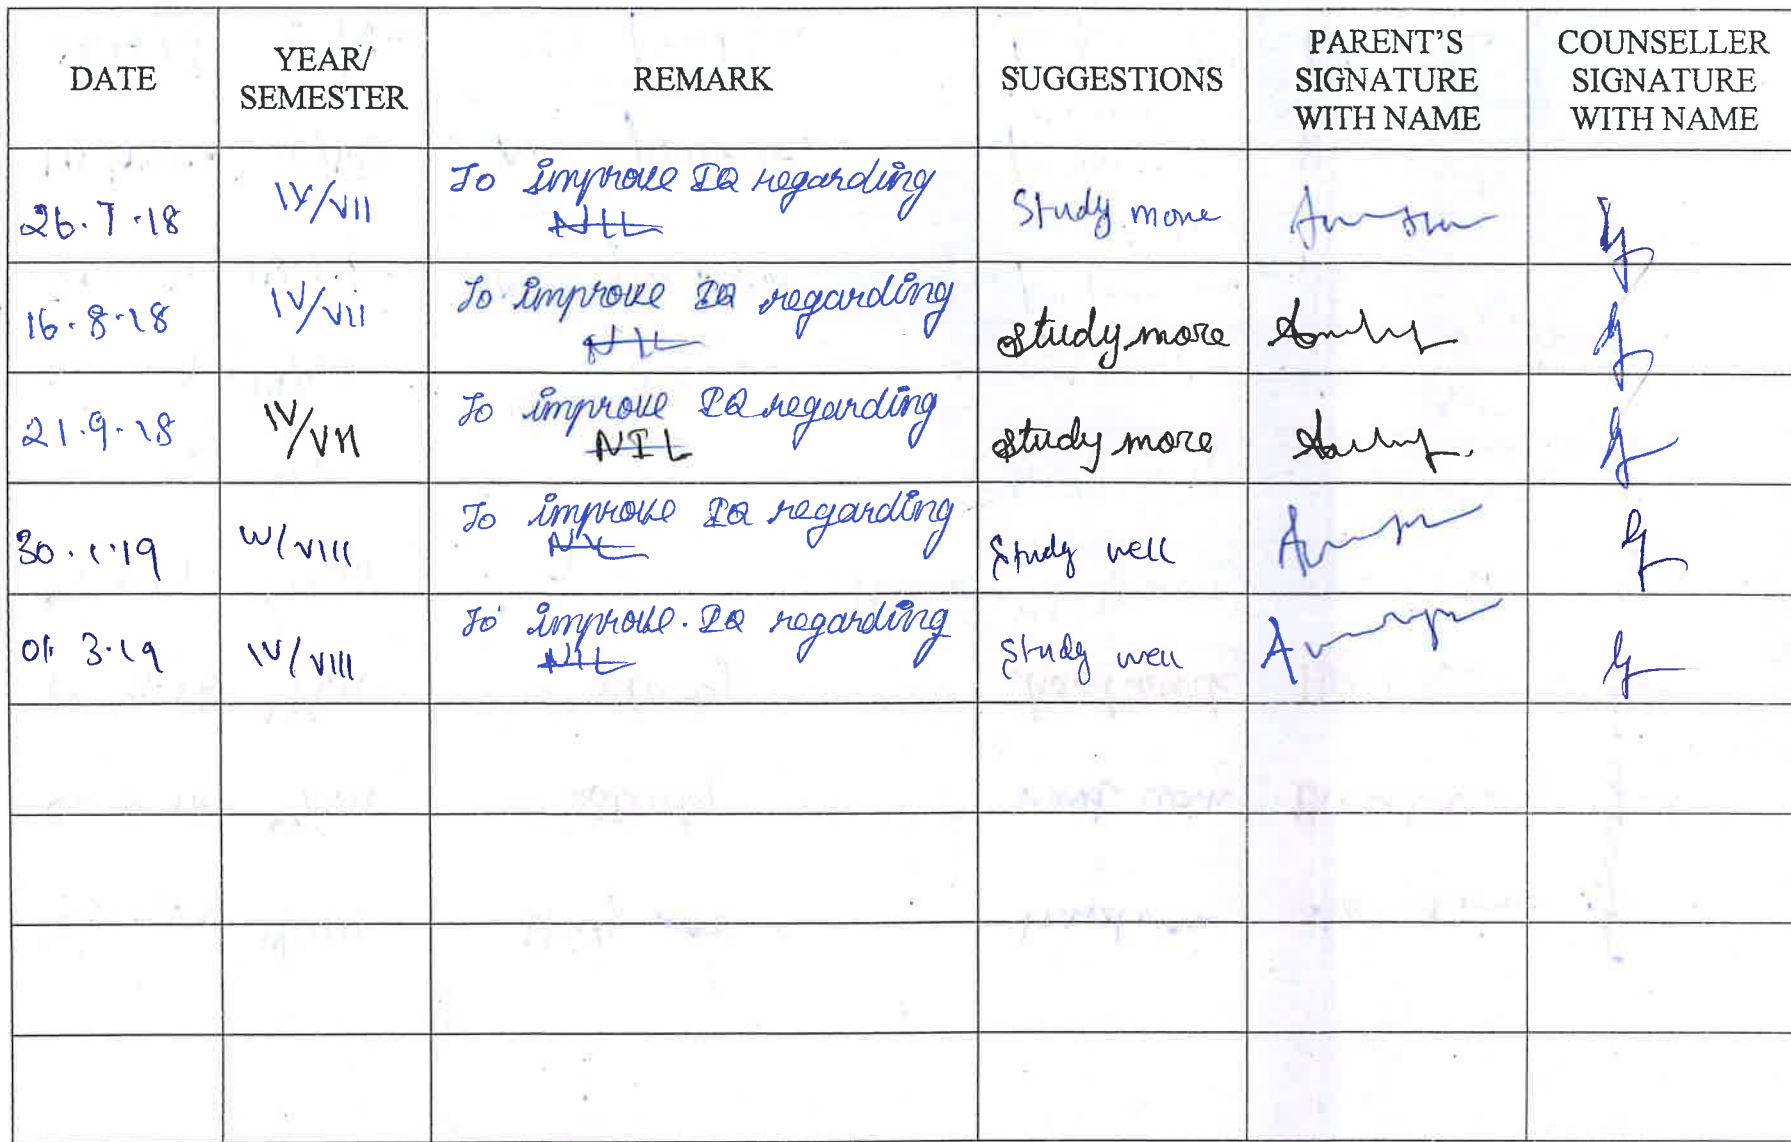 DATE YEAR/ SEMESTER REMARK SUGGESTIONS PARENT'S SIGNATURE WITH NAME COUNSELLER SIGNATURE WITH NAME
26.7.18 IV/VII To improve IQ regarding Study more
NIL
16.8.18 IV/vii To improve IQ regarding study more
NIL
21.9.18 IV/VII To improve IQ regarding study more
NIL
30.1.19 IV/VIII To improve IQ regarding Study well
NIL
01.3.19 IV/VIII To improve. IQ regarding Study well
NIL